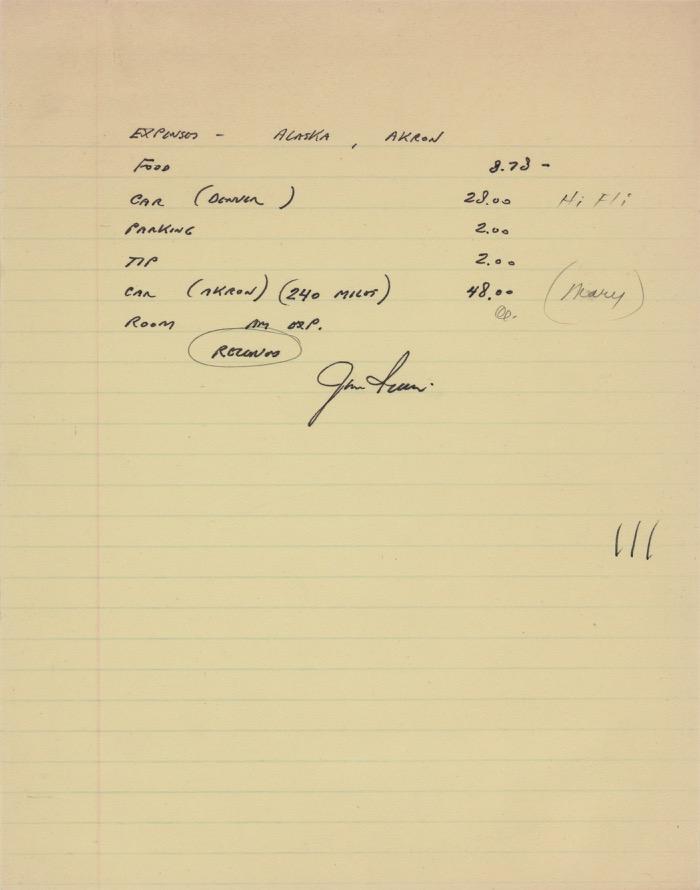 EXPENSES - ALASKA, AKRON
FOOD 8.78 -
CAR (DENVER) 28.00 Hi Fli
PARKING 2.00
TIP 2.00
CAR (AKRON) (240 MILES) 48.00 (Mary)
ROOM AM EXP.
RECORDS